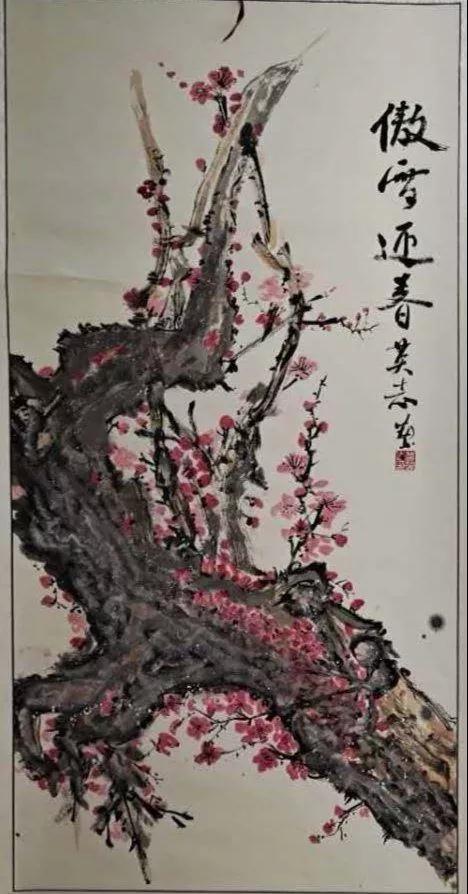 傲雪迎春英志画